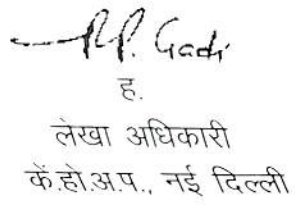 P.P. Gadi
ह.
लेखा अधिकारी
कें.हो.अ.प., नई दिल्ली